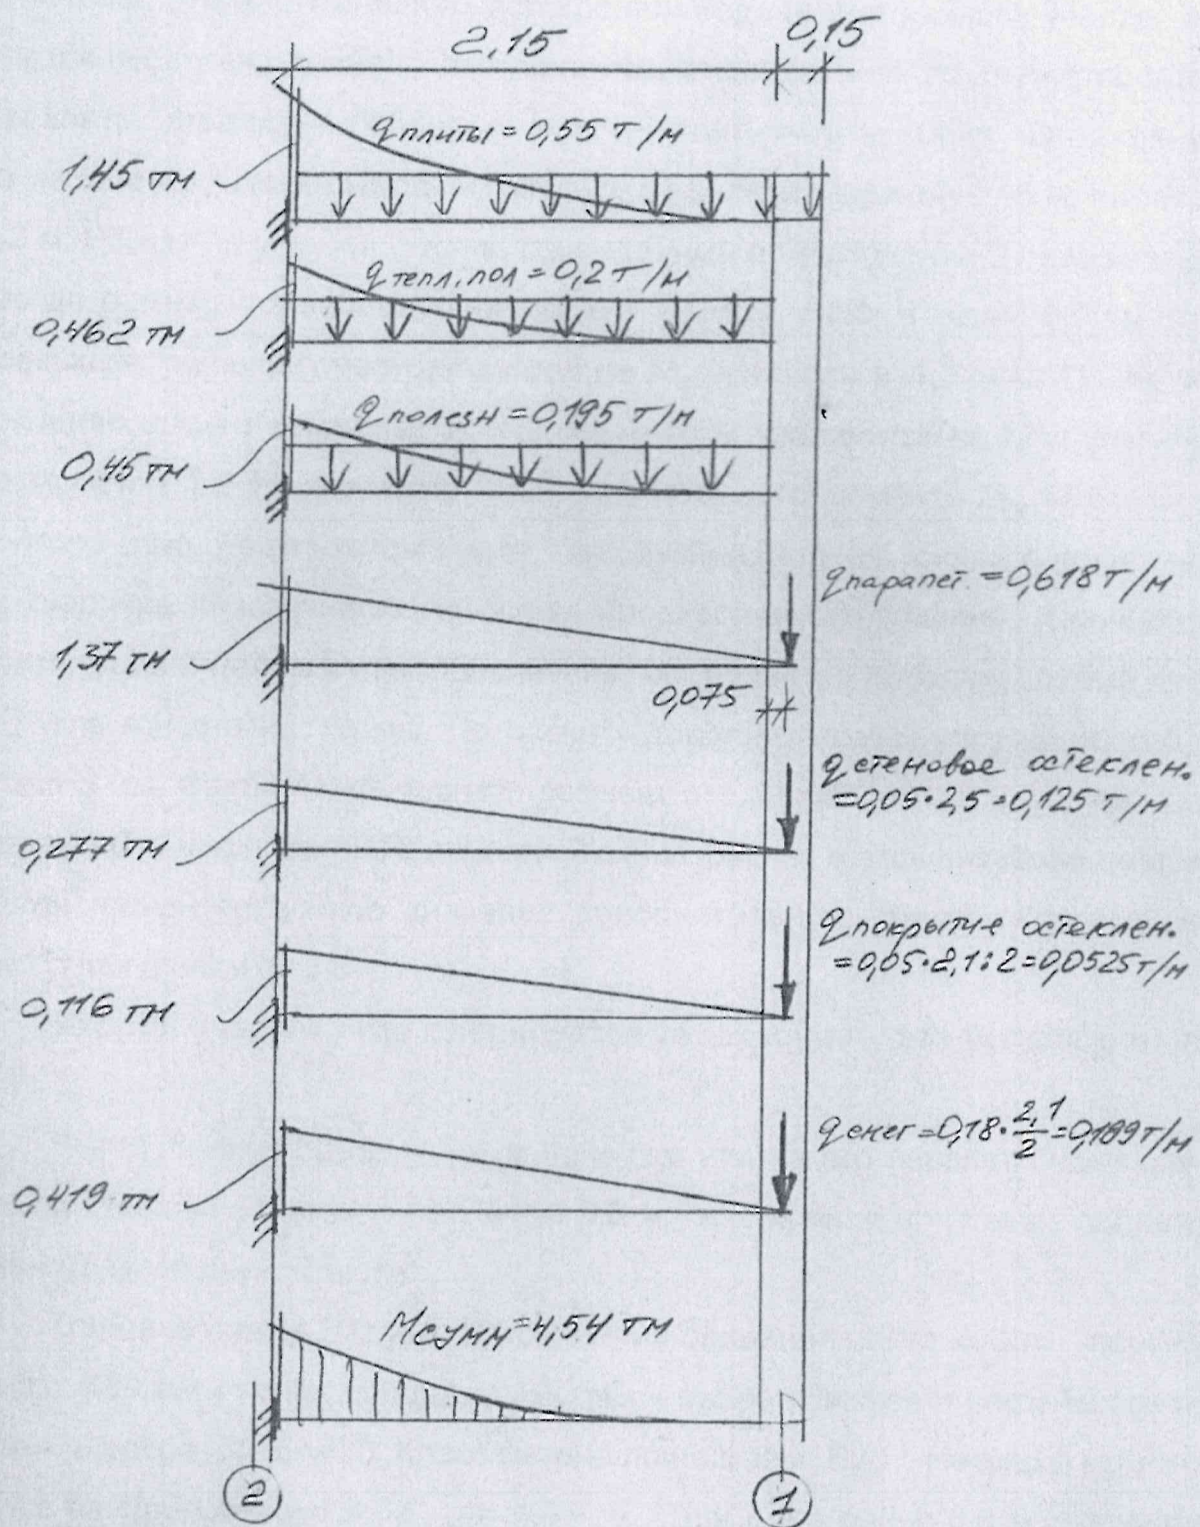 2,15
0,15
qплиты = 0,55 т/м
1,45 тм
qтепл.пол = 0,2 т/м
0,462 тм
qполезн = 0,195 т/м
0,45 тм
qпарапет. = 0,618 т/м
1,37 тм
0,075
qстеновое остеклен.
=0,05·2,5=0,125 т/м
0,277 тм
qпокрытие остеклен.
=0,05·2,1:2=0,0525 т/м
0,116 тм
qснег=0,18·2,1/2=0,189 т/м
0,419 тм
Mсумм=4,54 тм
2
1